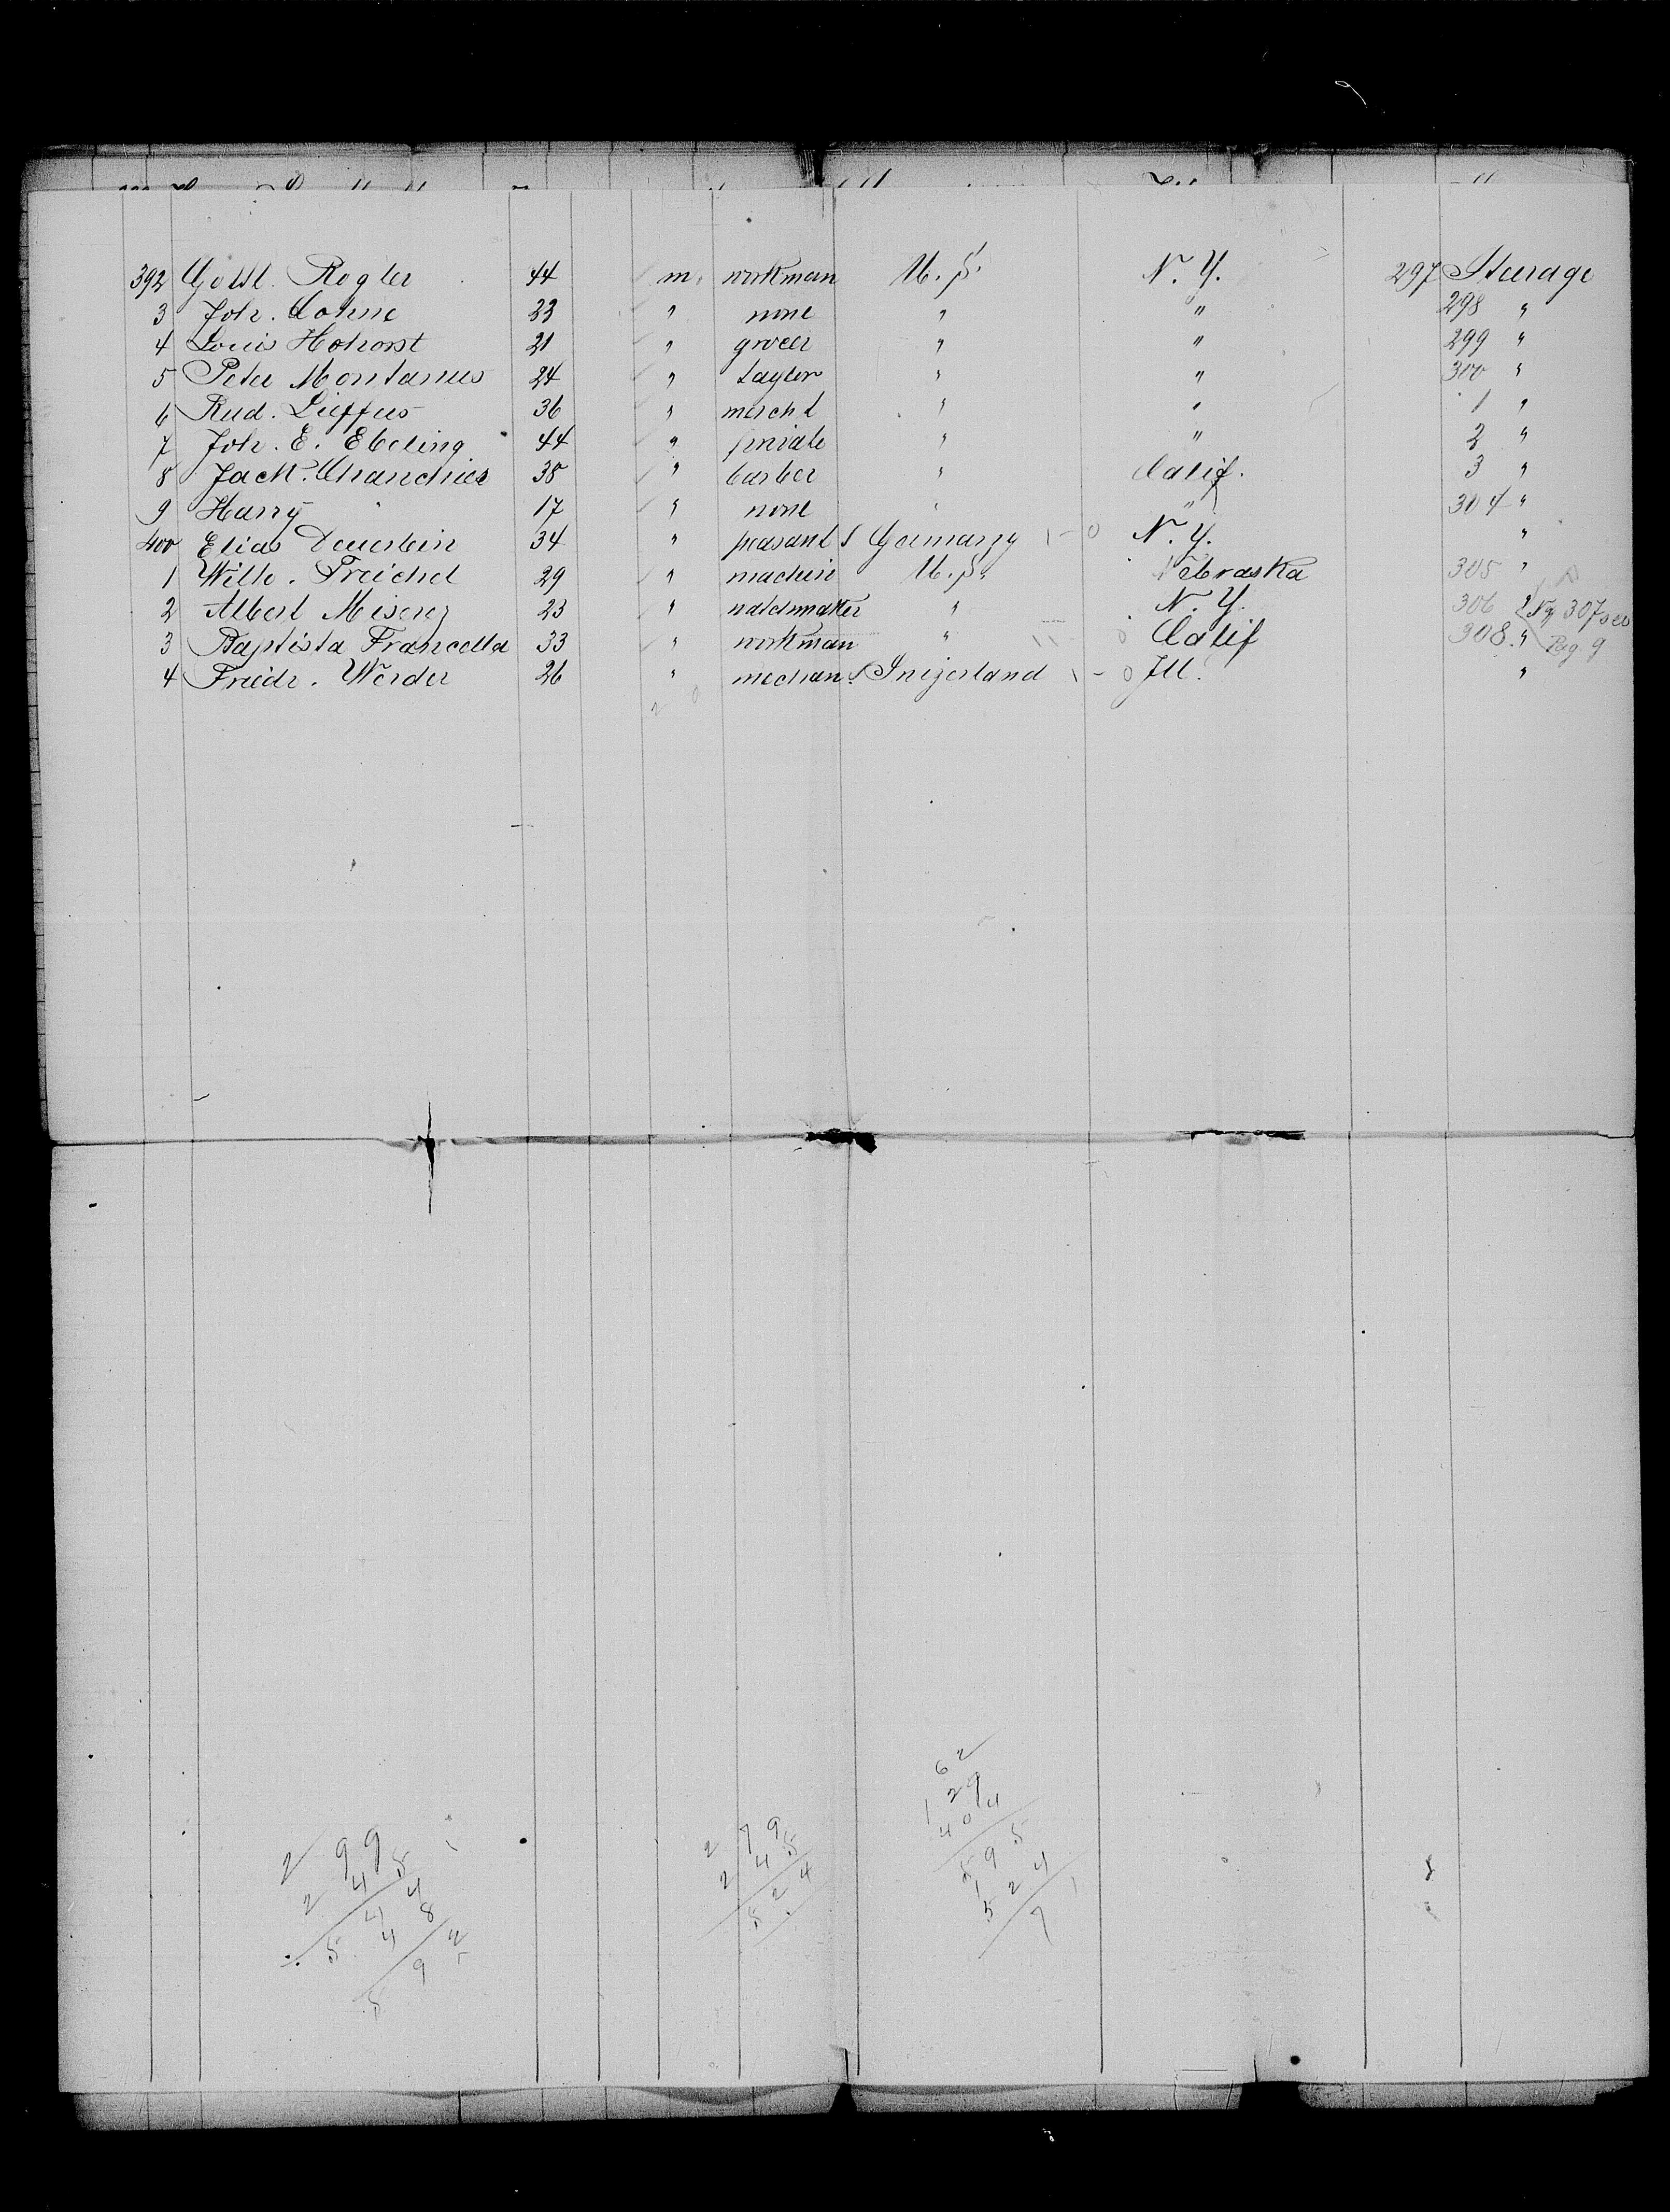 392 Gottl. Rogler 44 m. workman U. S. N. Y. 297 Steerage
3 Joh. Cohne 23 " none " " 298 "
4 Louis Hohorst 21 " grocer " " 299 "
5 Peter Montanus 24 " taylor " " 300 "
6 Rud. Lieffus 36 " mercht " " 1 "
7 Joh. E. Ebeling 44 " private " " 2 "
8 Jack. 38 " barber " Calif. 3 "
9 Harry " 17 " none " " 304 "
400 Elias Deuerbein 34 " peasant Germany 1-0 N. Y. "
1 Wilh. Freichel 29 " machin U. S. Nebraska 305 "
2 Albert Miserez 23 " watchmaker " N. Y. 306 " 307
3 Baptista Francella 33 " workman " Calif 308 " Pag. 9
4 Friedr. Werder 26 " mechan. Swizerland 1-0 Ill. "
2 0
299
245
544
48
592
279
245
524
62
129
404
595
524
71